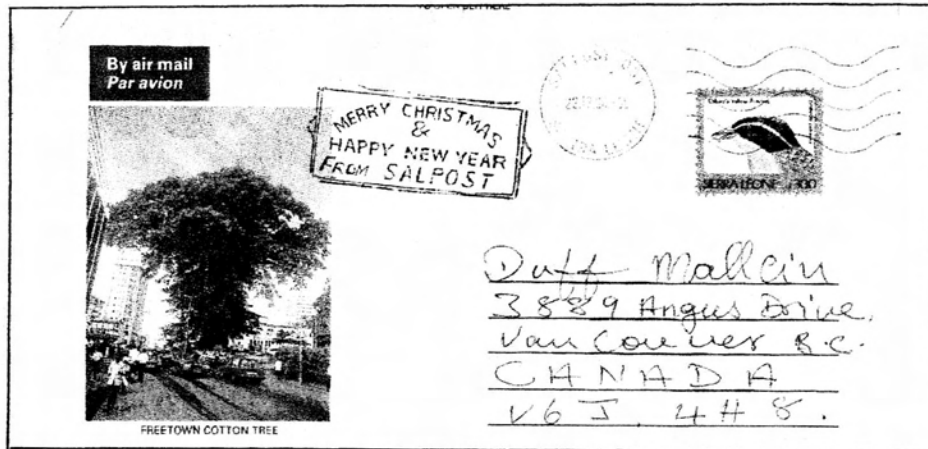 TO OPEN
HERE
By air mail
Par avion
MERRY CHRISTMAS
&
HAPPY NEW YEAR
FROM SALPOST
SIERRA LEONE 300
Duff Malkin
3889 Angus Drive,
Vancouver B.C.
CANADA
V6J 4H8.
FREETOWN COTTON TREE